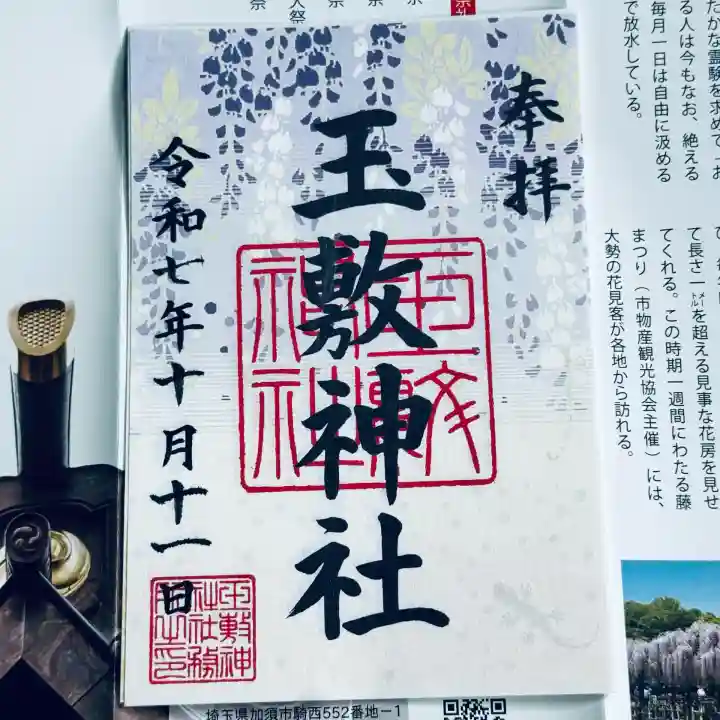 奉拝
玉敷神社
令和七年十月十一日
玉敷神社
玉敷神
社社務
たかな霊験を求めて、お
る人は今もなお、絶える
毎月一日は自由に汲める
で放水している。
て長さ一メートルを超える見事な花房を見せ
てくれる。この時期一週間にわたる藤
まつり（市物産観光協会主催）には、
大勢の花見客が各地から訪れる。
埼玉県加須市騎西552番地－1